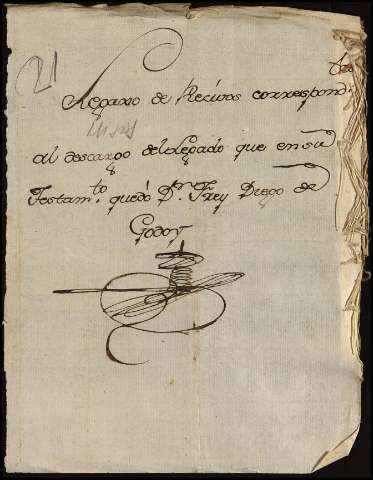 21
Legaxo de Recivos correspond.
al descargo del Legado que en su
Testam.to quedó D.n Frey Diego de
Godoy